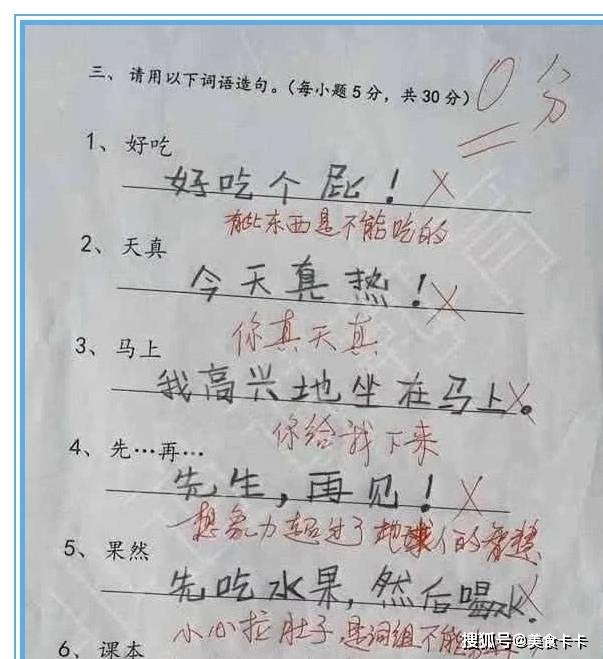 三、请用以下词语造句。（每小题5分，共30分）
0分
1、好吃
好吃个屁！
有些东西是不能吃的
2、天真
今天真热！
你真天真
3、马上
我高兴地坐在马上。
你给我下来
4、先…再…
先生，再见！
想象力超过了地球人的智慧
5、果然
先吃水果，然后喝水。
小心拉肚子，是词组不能
6、课本
搜狐号@美食卡卡